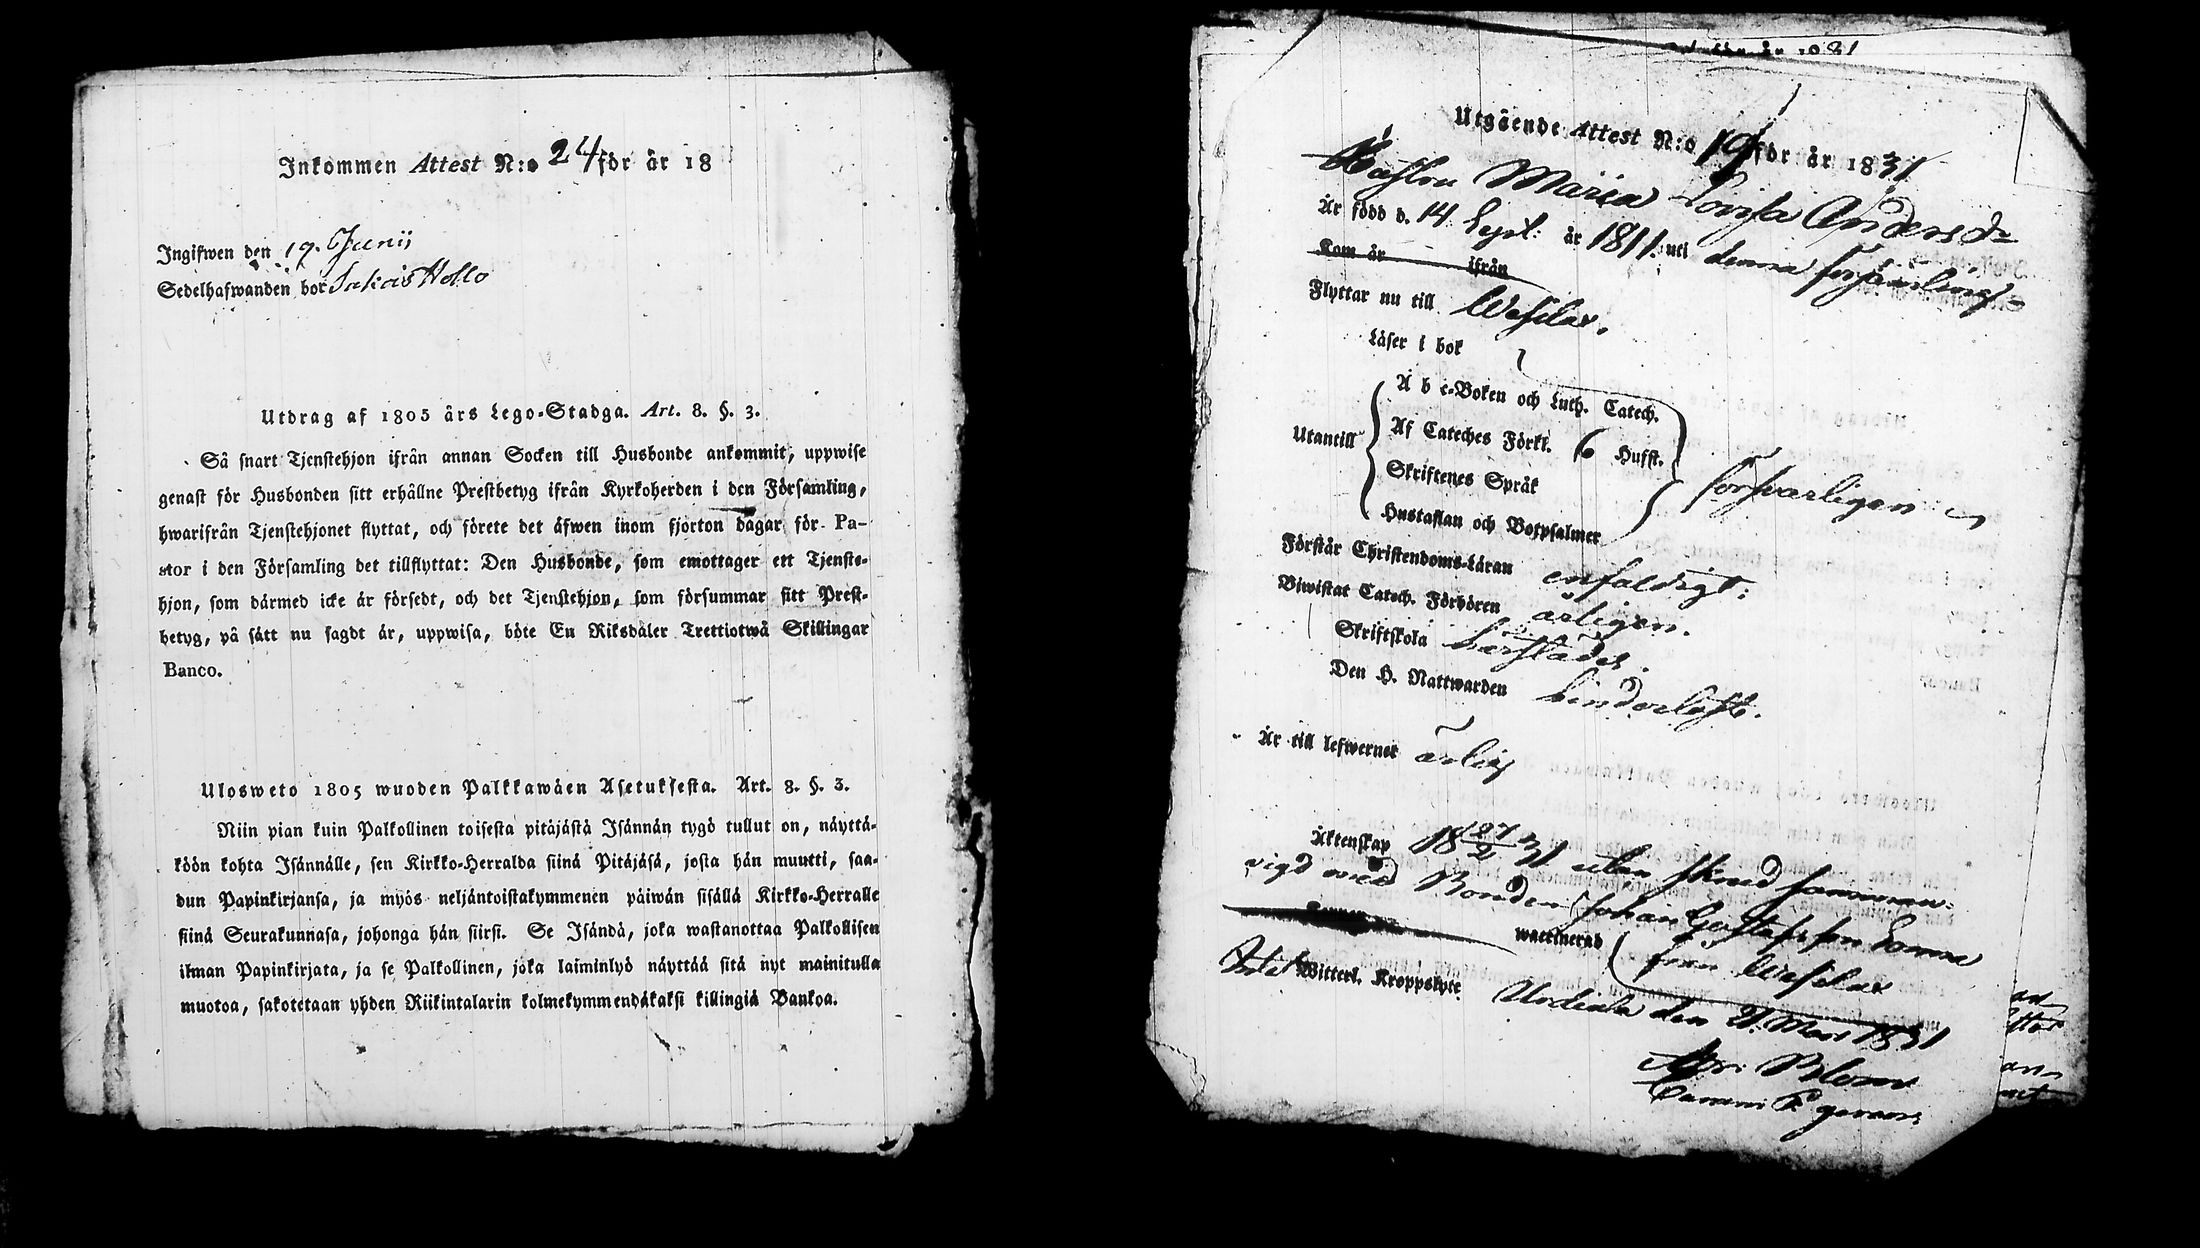 Inkommen Attest N:o 24 för år 18
Ingifwen den 19. Junii
Sedelhafwanden bor
Utdrag af 1805 års Lego-Stadga. Art. 8. §. 3.
Så snart Tjenstehjon ifrån annan Socken till Husbonde ankommit, uppwise
genast för Husbonden sitt erhållne Prestbetyg ifrån Kyrkoherden i den Församling,
hwarifrån Tjenstehjonet flyttat, och förete det äfwen inom fjorton dagar för Pa-
stor i den Församling det tillflyttat: Den Husbonde, som emottager ett Tjenste-
hjon, som därmed icke är försedt, och det Tjenstehjon, som försummar sitt Prest-
betyg, på sätt nu sagdt är, uppwisa, böte En Riksdaler Trettiotwå Skillingar
Banco.
Ulosweto 1805 wuoden Palkkawäen Asetuksesta. Art. 8. §. 3.
Niin pian kuin Palkollinen toisesta pitäjästä Isännän tygö tullut on, näyttä-
köön kohta Isännälle, sen Kirkko-Herralda siinä Pitäjäsä, josta hän muutti, saa-
dun Papinkirjansa, ja myös neljäntoistakymmenen päiwän sisällä Kirkko-Herralle
siinä Seurakunnasa, johonga hän siirsi. Se Isändä, joka wastanottaa Palkollisen
ilman Papinkirjata, ja se Palkollinen, joka laiminlyö näyttää sitä nyt mainitulla
muotoa, sakotetaan yhden Riikintalarin kolmekymmendäkaksi killingiä Bankoa.
Utgående Attest N:o 19 för år 1831
Maria Lovisa Andersdr
Är född d. 14 Sept: år 1811. uti denna församling
Kom år ifrån
Flyttar nu till
Läser i bok
A b c-Boken och Luth. Catech.
Utantill Af Cateches Förkl. 6 Hufst. försvarligen
Skriftenes Språk
Hustaflan och Botpsalmer
Förstår Christendoms-Läran enfaldigt:
Biwistat Catech. Förhören årligen.
Skriftskola
Den H. Nattwarden
Är till lefwernet ärlig
Äktenskap 18 27/2 31 utan samman-
vigd med Bonden Johan Gustafsson
waccinerad från
Witterl. Kroppslyte
Urdiala den 21. Mars 1831
Blom